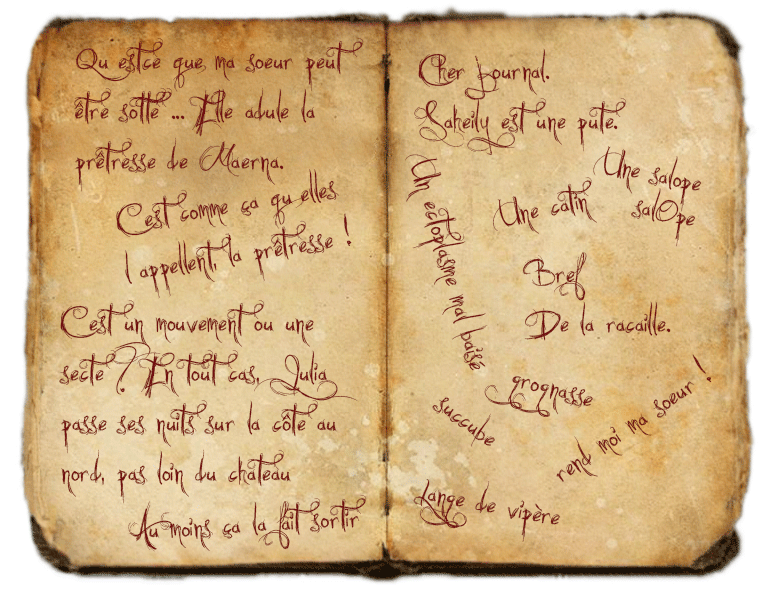 Qu estce que ma soeur peut
être sotte ... Elle adule la
prêtresse de Maerna.
C'est comme ça qu elles
l appellent, la prêtresse !
C'est un mouvement ou une
secte ? En tout cas, Julia
passe ses nuits sur la côte au
nord, pas loin du chateau
Au moins ça la fait sortir
Cher Journal.
Saheily est une pute.
Une salope
Une catin
salOpe
Un ectoplasme mal baisé
Bref
De la racaille.
grognasse
succube
rend moi ma soeur !
Lange de vipère